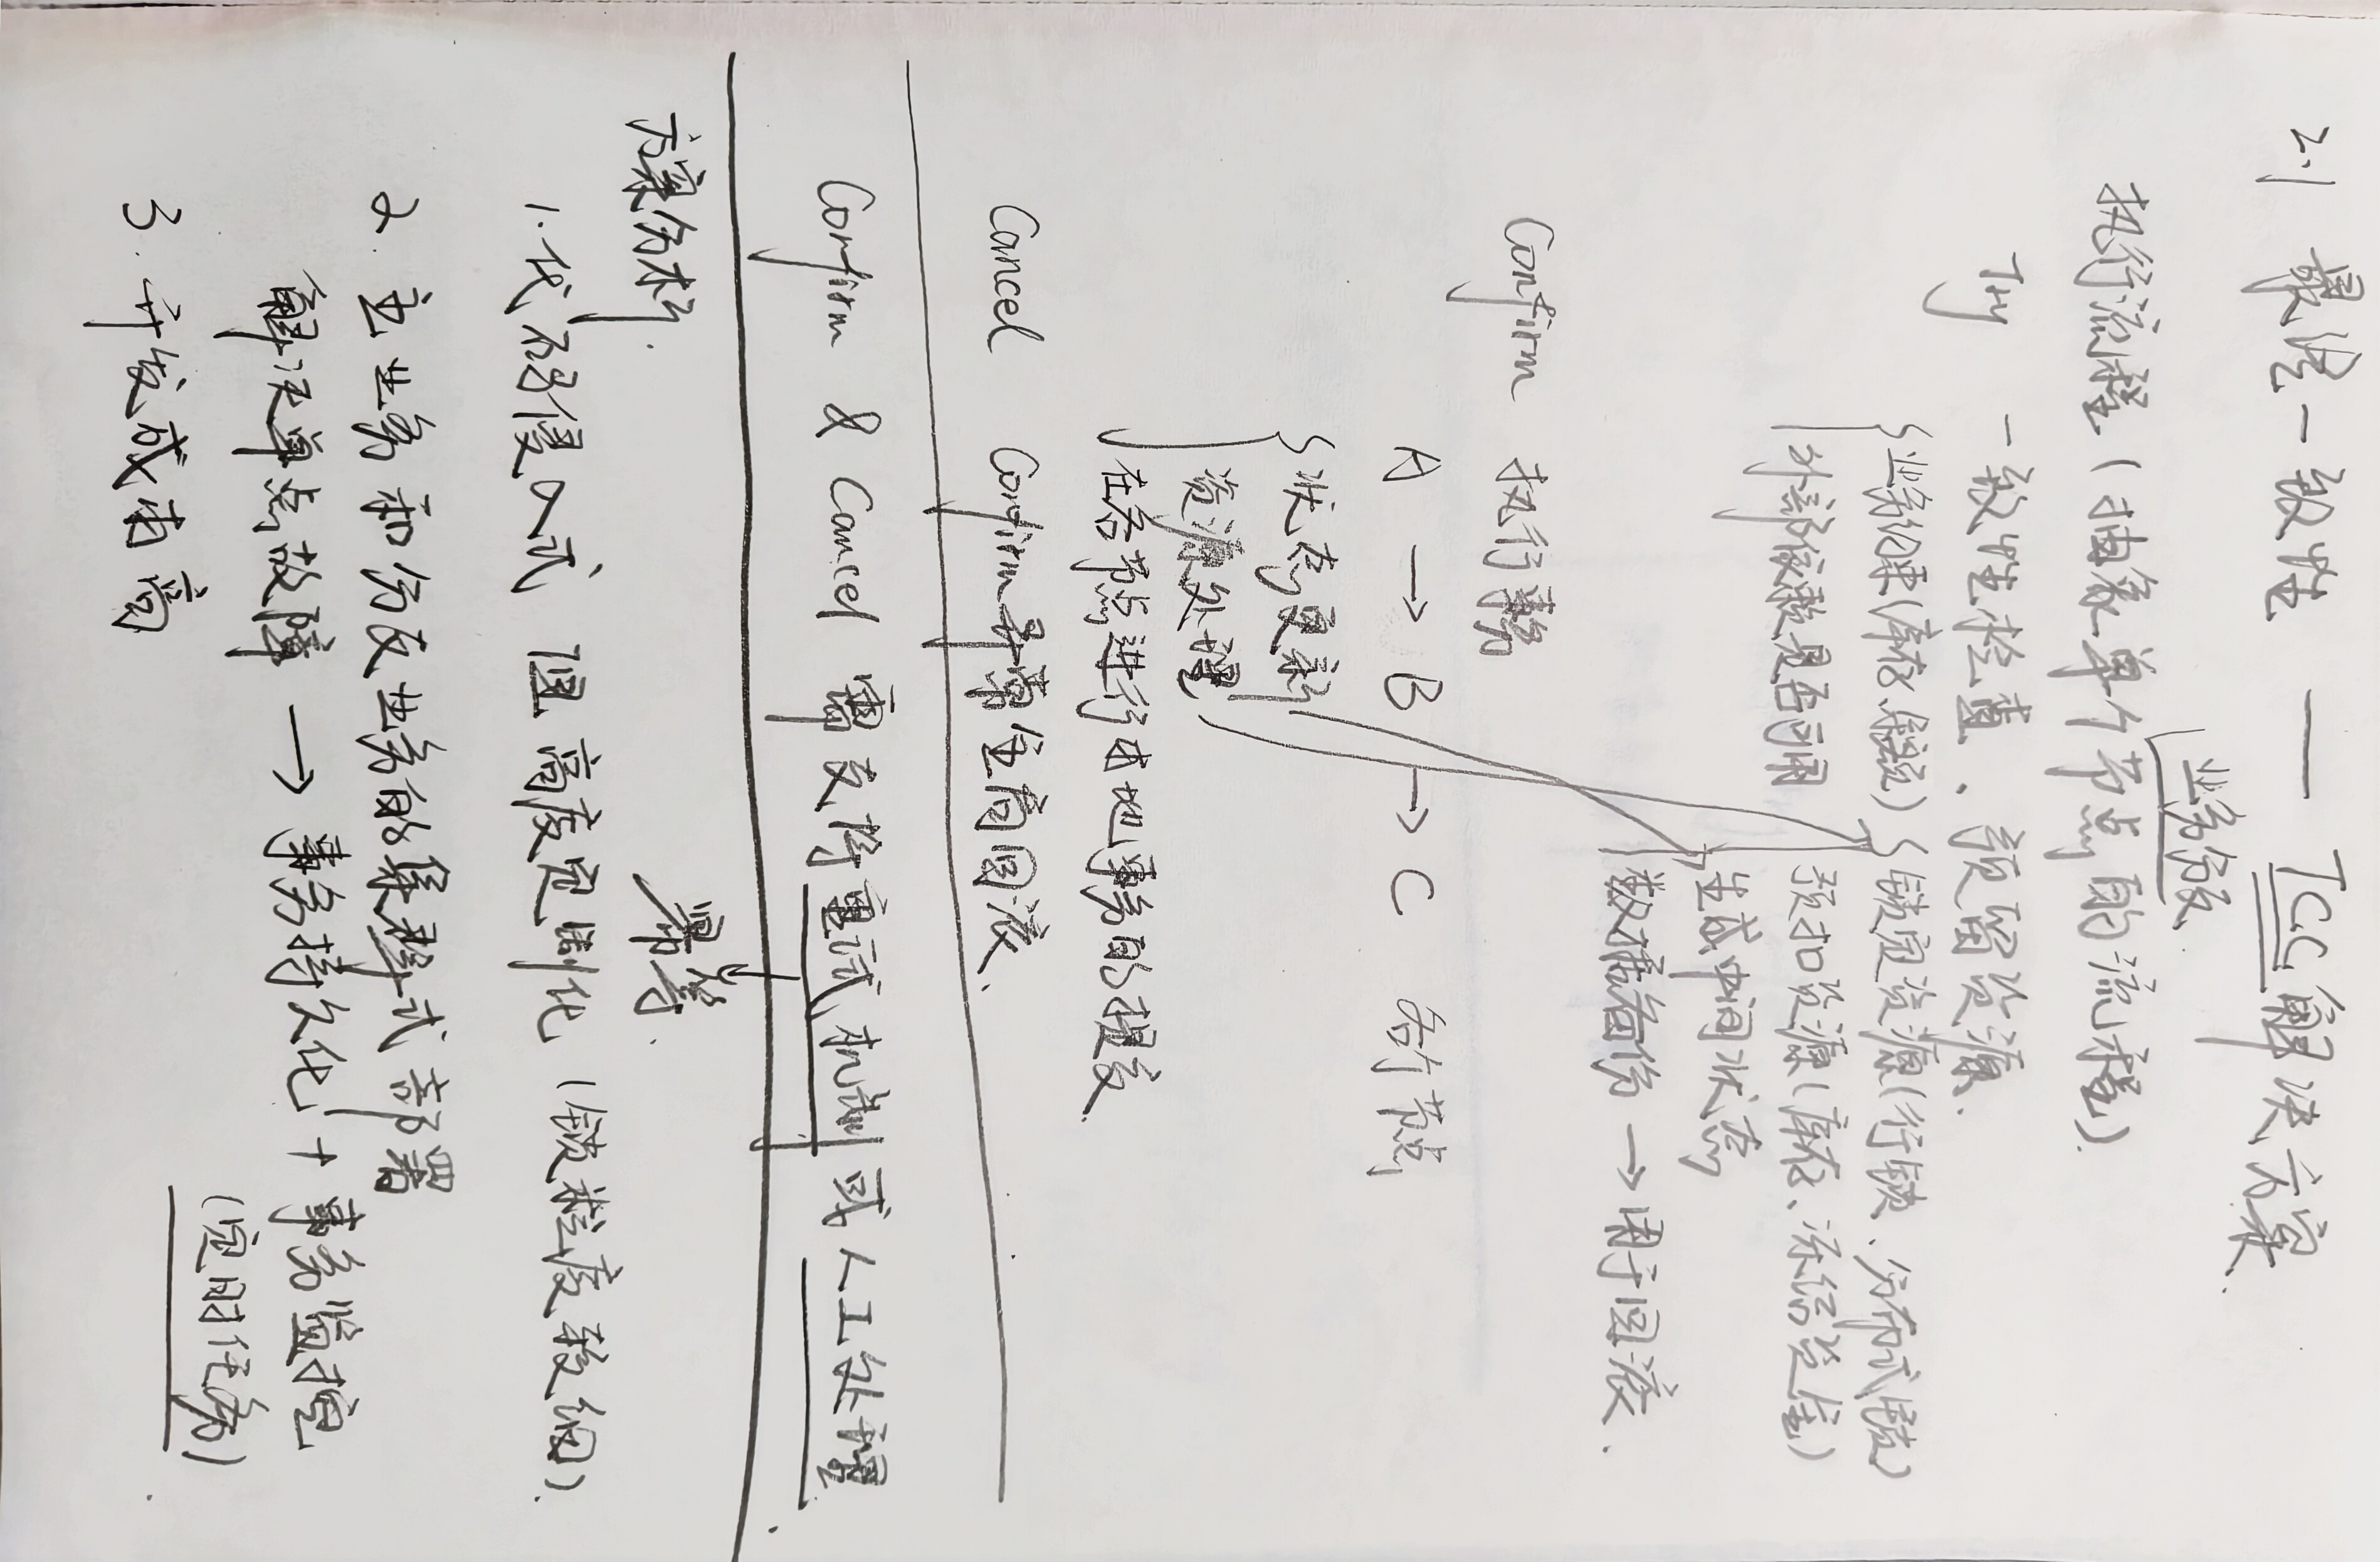 2.1 最终一致性 — TCC解决方案.
业务分支
执行流程(抽象单个节点的流程).
Try 一致性检查、预留资源.
业务约束(库存、余额) 锁定资源(行锁、分布式锁)
外部依赖是否可用 预扣资源(库存、冻结资金)
生成中间状态
数据备份 → 用于回滚.
Confirm 执行事务
A → B → C 各个节点
状态更新
资源处理
在各节点进行本地事务的提交.
Cancel Confirm异常全局回滚.
Confirm & Cancel 需支持重试机制或人工处理.
幂等.
方案分析.
1. 代码侵入式 且高度定制化 (锁粒度较细).
2. 主业务和分支业务的集群式部署
解决单点故障 → 事务持久化 + 事务监控
(定时任务)
3. 开发成本高